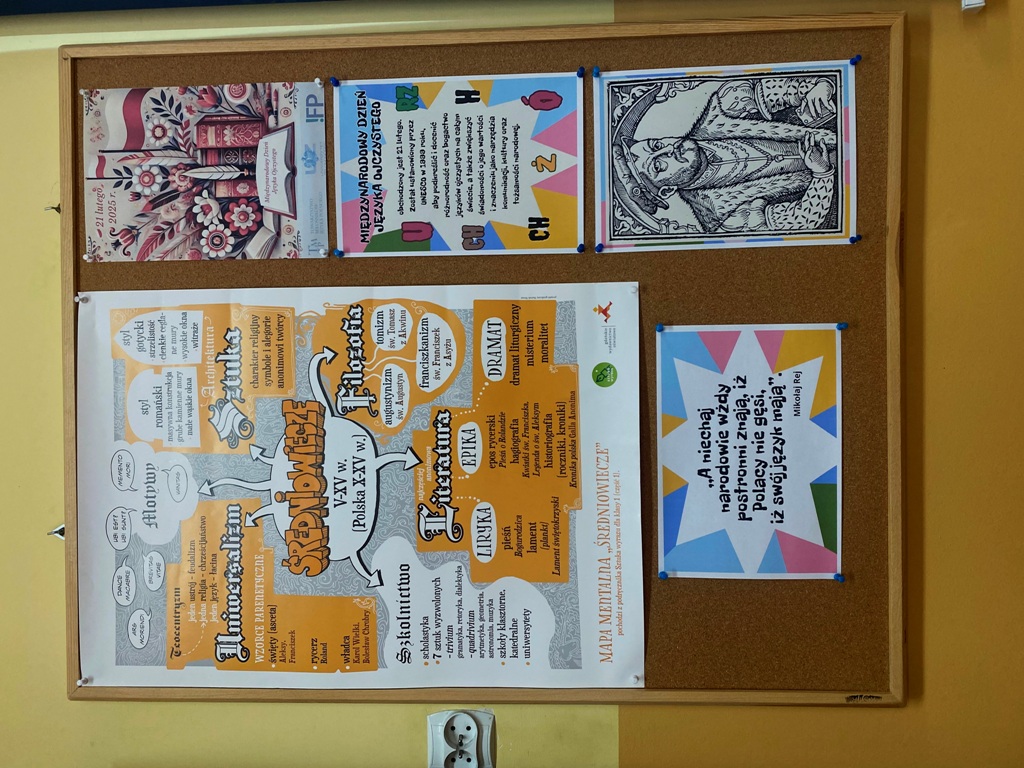 Teocentryzm
jeden ustrój – feudalizm
jedna religia – chrześcijaństwo
jeden język – łacina
Uniwersalizm
WZORCE PARENETYCZNE
• święty (asceta)
Aleksy,
Franciszek
• rycerz
Roland
• władca
Karol Wielki,
Bolesław Chrobry
ARS
MORIENDI
DANSE
MACABRE
UBI SUNT?
MEMENTO
MORI
BREVITAS
VITAE
VANITAS
Motywy
styl
romański
masywna konstrukcja
grube kamienne mury
małe wąskie okna
styl
gotycki
strzelistość
cienkie cegla-
ne mury
wysokie okna
witraże
Architektura
Sztuka
charakter religijny
symbole i alegorie
anonimowi twórcy
ŚREDNIOWIECZE
V-XV w.
(Polska X-XV w.)
Filozofia
augustynizm
św. Augustyn
tomizm
św. Tomasz
z Akwinu
franciszkanizm
św. Franciszek
z Asyżu
Szkolnictwo
• scholastyka
• 7 sztuk wyzwolonych
- trivium
gramatyka, retoryka, dialektyka
- quadrivium
arytmetyka, geometria,
astronomia, muzyka
• szkoły klasztorne,
katedralne
• uniwersytety
najczęściej
anonimowa
Literatura
LIRYKA
pieśń
Bogurodzica
lament
(planki)
Lament świętokrzyski
EPIKA
epos rycerski
Pieśń o Rolandzie
hagiografia
Kwiatki św. Franciszka,
Legenda o św. Aleksym
historiografia
(roczniki, kroniki)
Kronika polska Galla Anonima
DRAMAT
dramat liturgiczny
misterium
moralitet
MAPA MENTALNA „ŚREDNIOWIECZE”
pochodzi z podręcznika Sztuka wyrazu dla klasy 1 (część 1).
21 lutego,
2025 r.
Międzynarodowy Dzień
Języka Ojczystego
IFP
MIĘDZYNARODOWY DZIEŃ
JĘZYKA OJCZYSTEGO
obchodzony jest 21 lutego.
Został ustanowiony przez
UNESCO w 1999 roku,
aby podkreślić i docenić
różnorodność oraz bogactwo
języków ojczystych na całym
świecie, a także zwiększyć
świadomość o jego wartości
i znaczeniu jako narzędzia
komunikacji, kultury oraz
tożsamości narodowej.
U
RZ
CH
H
CH
Ż
Ó
„A niechaj
narodowie wżdy
postronni znają, iż
Polacy nie gęsi,
iż swój język mają”.
Mikołaj Rej